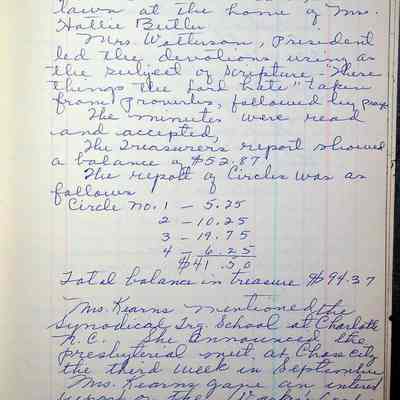 lawn at the home of Mrs.
Hattie Butler
Mrs. Watterson, President
led the devotions using as
the subject of Scripture - "These
things the Lord hate" taken
from Proverbs, followed by prayer
The minutes were read
and accepted,
The Treasurers report showed
a balance of $52.87
The report of Circles was as
follows
Circle no. 1 - 5.25
2 - 10.25
3 - 19.75
4 - 6.25
$41.50
Total balance in treasure $94.37
Mrs. Kearns mentioned the
Synodical Trg. School at Charlotte
N.C. She announced the
presbyterial meet. at Chase City
the third week in September
Mrs. Kearns gave an
report of the